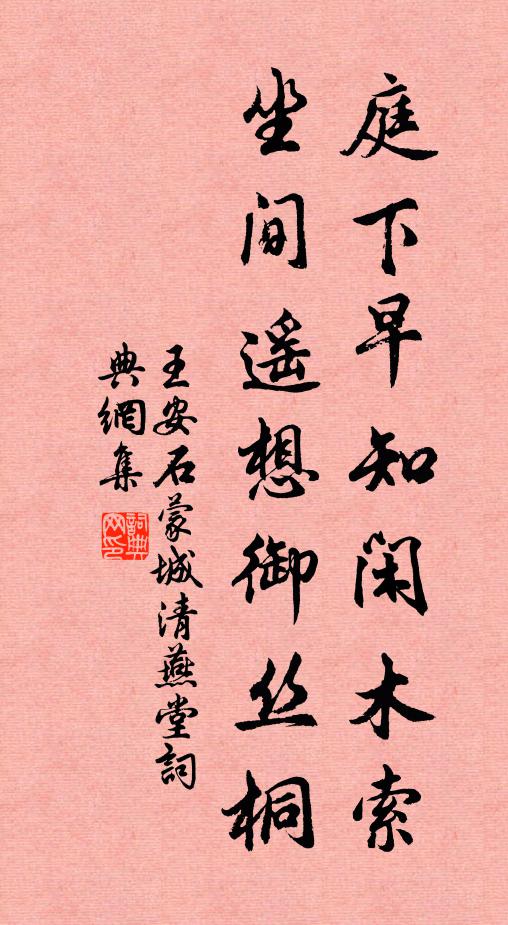 庭下早知闲木索
坐间遥想御丝桐
王安石蒙城清燕堂詞
典網集
詞典
网印